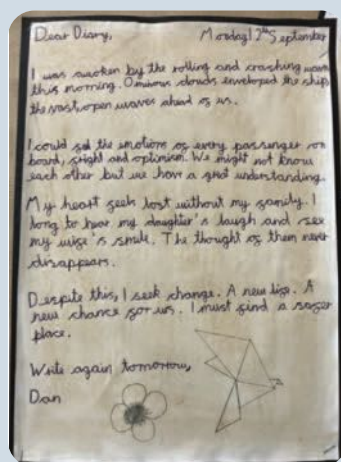 Dear Diary, Monday 12th September
I was awoken by the rolling and crashing waves
this morning. Ominous clouds enveloped the ship,
the vast, open waves ahead of us.
I could the emotions of every passenger on
board, fright and optimism. We might not know
each other but we have a great understanding.
My heart feels lost without my family. I
long to hear my daughter's laugh and see
my wife's smile. The thought of them never
disappears.
Despite this, I seek change. A new life. A
new chance for us. I must find a safer
place.
Write again tomorrow,
Dan